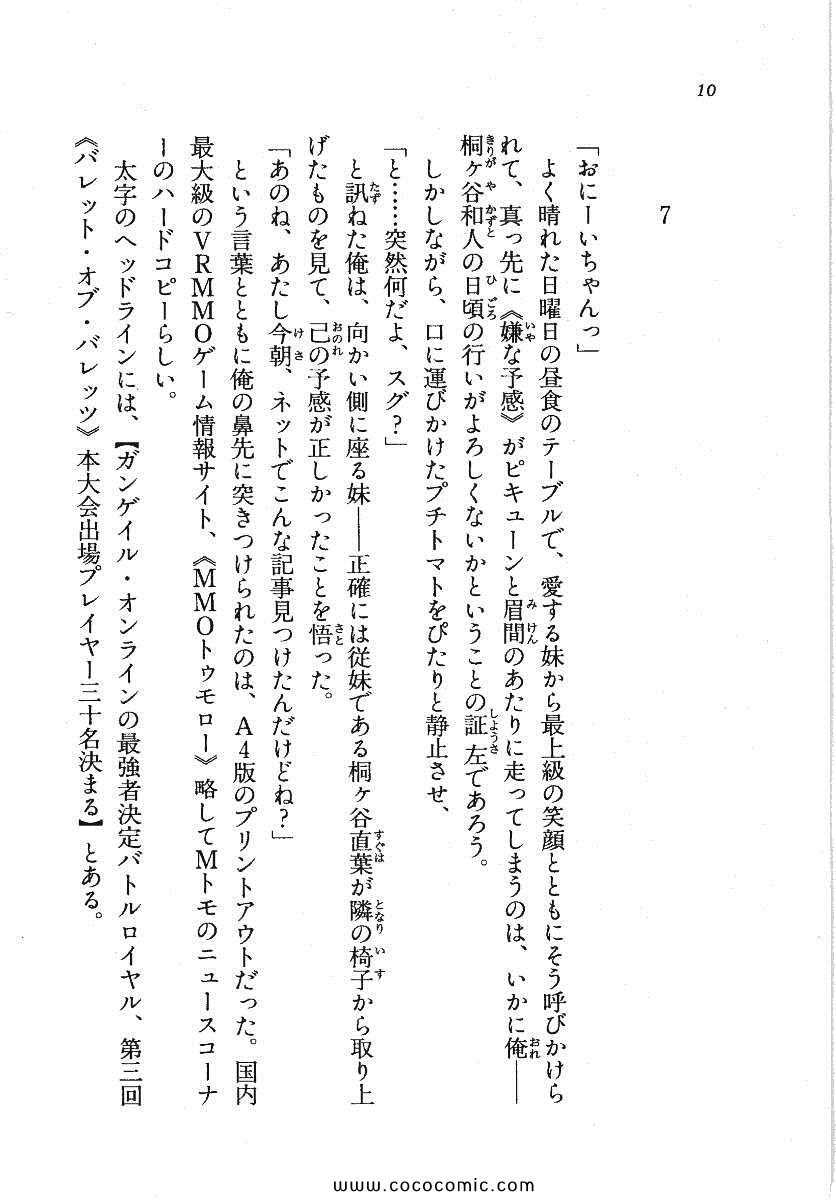 10
7
「おにーいちゃんっ」
よく晴れた日曜日の昼食のテーブルで、愛する妹から最上級の笑顔とともにそう呼びかけら
れて、真っ先に《嫌な予感》がピキューンと眉間のあたりに走ってしまうのは、いかに俺――
桐ヶ谷和人の日頃の行いがよろしくないかということの証左であろう。
しかしながら、口に運びかけたプチトマトをぴたりと静止させ、
「と……突然何だよ、スグ？」
と訊ねた俺は、向かい側に座る妹――正確には従妹である桐ヶ谷直葉が隣の椅子から取り上
げたものを見て、己の予感が正しかったことを悟った。
「あのね、あたし今朝、ネットでこんな記事見つけたんだけどね？」
という言葉とともに俺の鼻先に突きつけられたのは、A4版のプリントアウトだった。国内
最大級のVRMMOゲーム情報サイト、《MMOトゥモロー》略してMトモのニュースコーナ
ーのハードコピーらしい。
太字のヘッドラインには、【ガンゲイル・オンラインの最強者決定バトルロイヤル、第三回
《バレット・オブ・バレッツ》本大会出場プレイヤー三十名決まる】とある。
www.cococomic.com